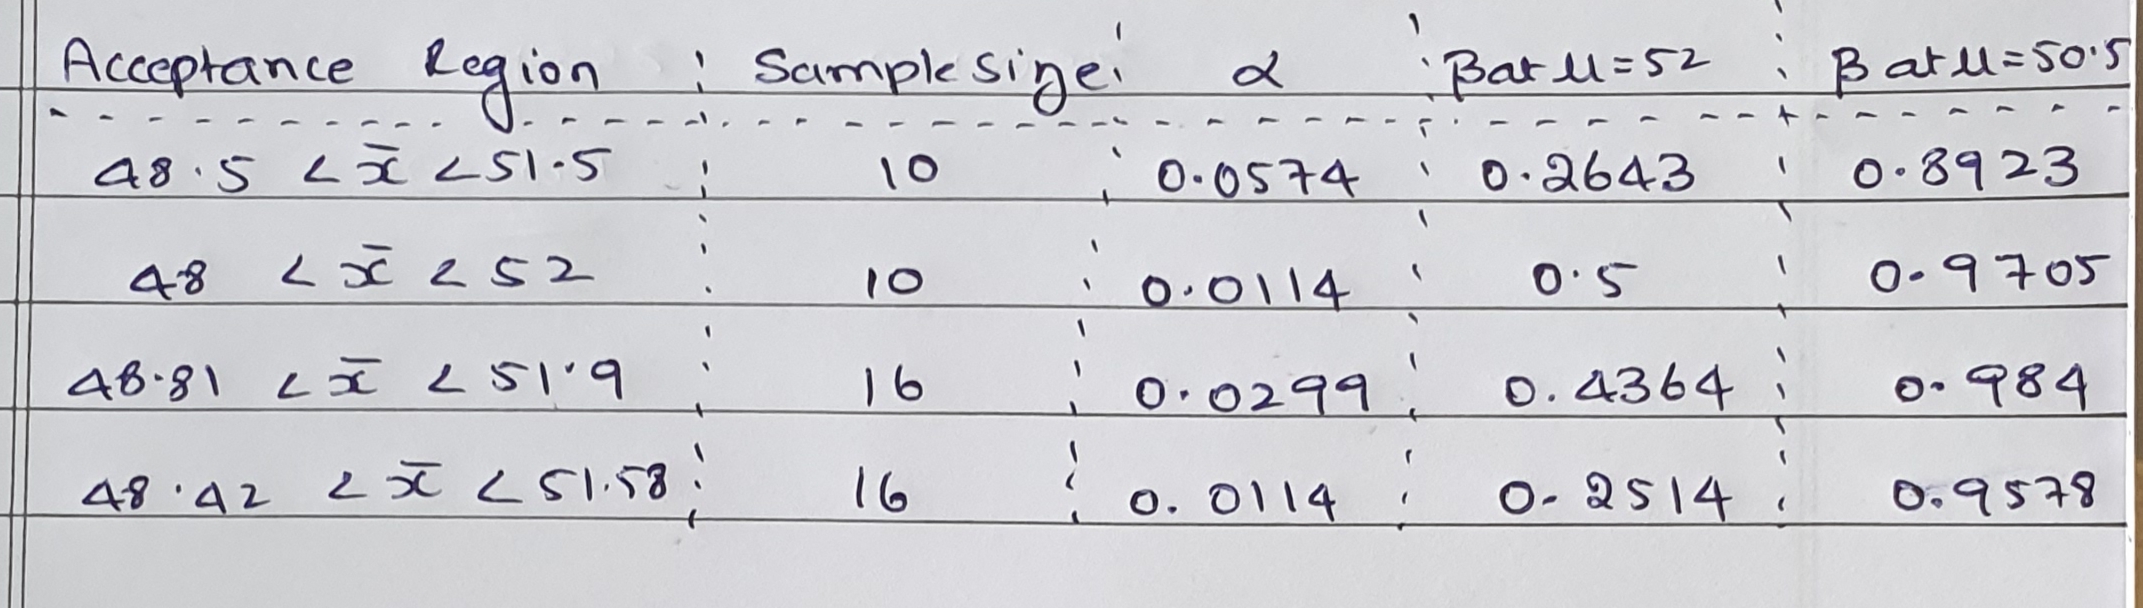 Acceptance Region ¦ Sample size ¦ α ¦ β at μ=52 ¦ β at μ=50.5
48.5 < x̄ < 51.5 ¦ 10 ¦ 0.0574 ¦ 0.2643 ¦ 0.8923
48 < x̄ < 52 ¦ 10 ¦ 0.0114 ¦ 0.5 ¦ 0.9705
48.81 < x̄ < 51.9 ¦ 16 ¦ 0.0299 ¦ 0.4364 ¦ 0.984
48.42 < x̄ < 51.58 ¦ 16 ¦ 0.0114 ¦ 0.2514 ¦ 0.9578